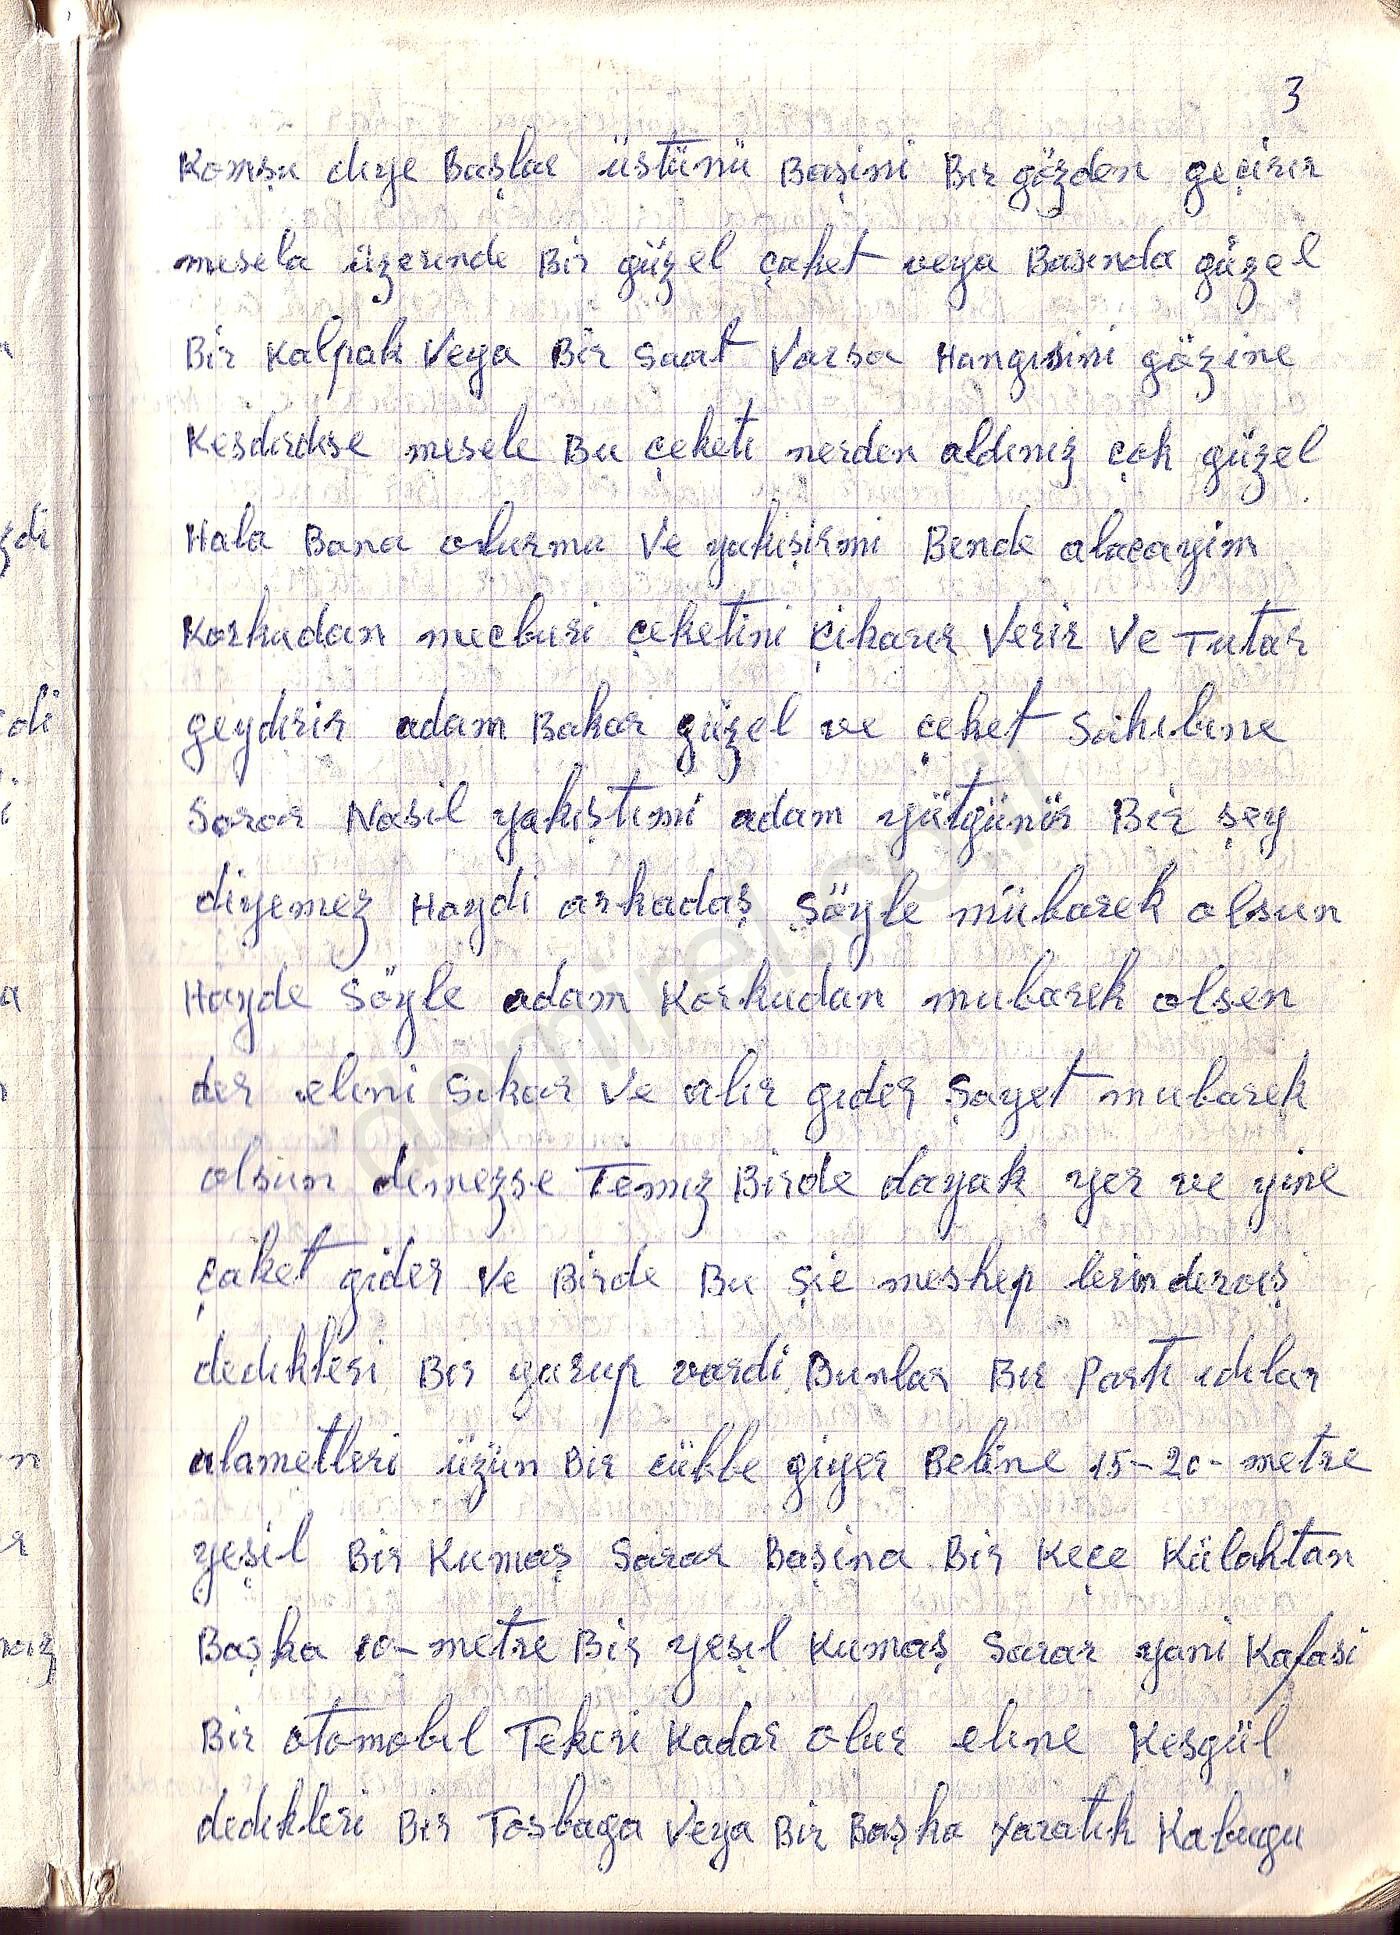 3
Komşu diye Başlar üstünü Başini Bir gözden geçirir
mesela üzerinde Bir güzel çaket veya Basında güzel
Bir Kalpak Veya Bir Saat Varsa Hangisini gözine
Kesdirdise mesele Bu çeketi nerden aldınız çok güzel
Hala Bana olurmu Ve yakışirmi Bende alacayim
Korkudan mecburi çeketini çikarır Verir Ve Tutar
geydirir adam Bakar güzel ve çeket Sahıbıne
Sorar Nasil yakıştımi adam yütgünür Bir şey
diyemez Haydi arkadaş Söyle mübarek olsun
Hayde Söyle adam Korkudan mubarek olsen
der elini Sıkar Ve alir gider Şayet mubarek
olsun demezse Temiz Birde dayak yer ve yine
çaket gider Ve Birde Bu Şie meshep lerin derviş
dedikleri Bir gurup vardi Bunlar Bir Parti idılar
alametleri üzün Bir cübbe giyer Beline 15-20- metre
yeşil Bir Kumaş Sarar Başina Bir Keçe Külahtan
Başka 10- metre Bir yeşıl Kumaş Sarar yani Kafasi
Bir otomobıl Tekeri Kadar olur elıne Kesgül
dedıkleri Bir Tosbaga Veya Bir Başka Yaratık Kabugu
di
di
i
a
n